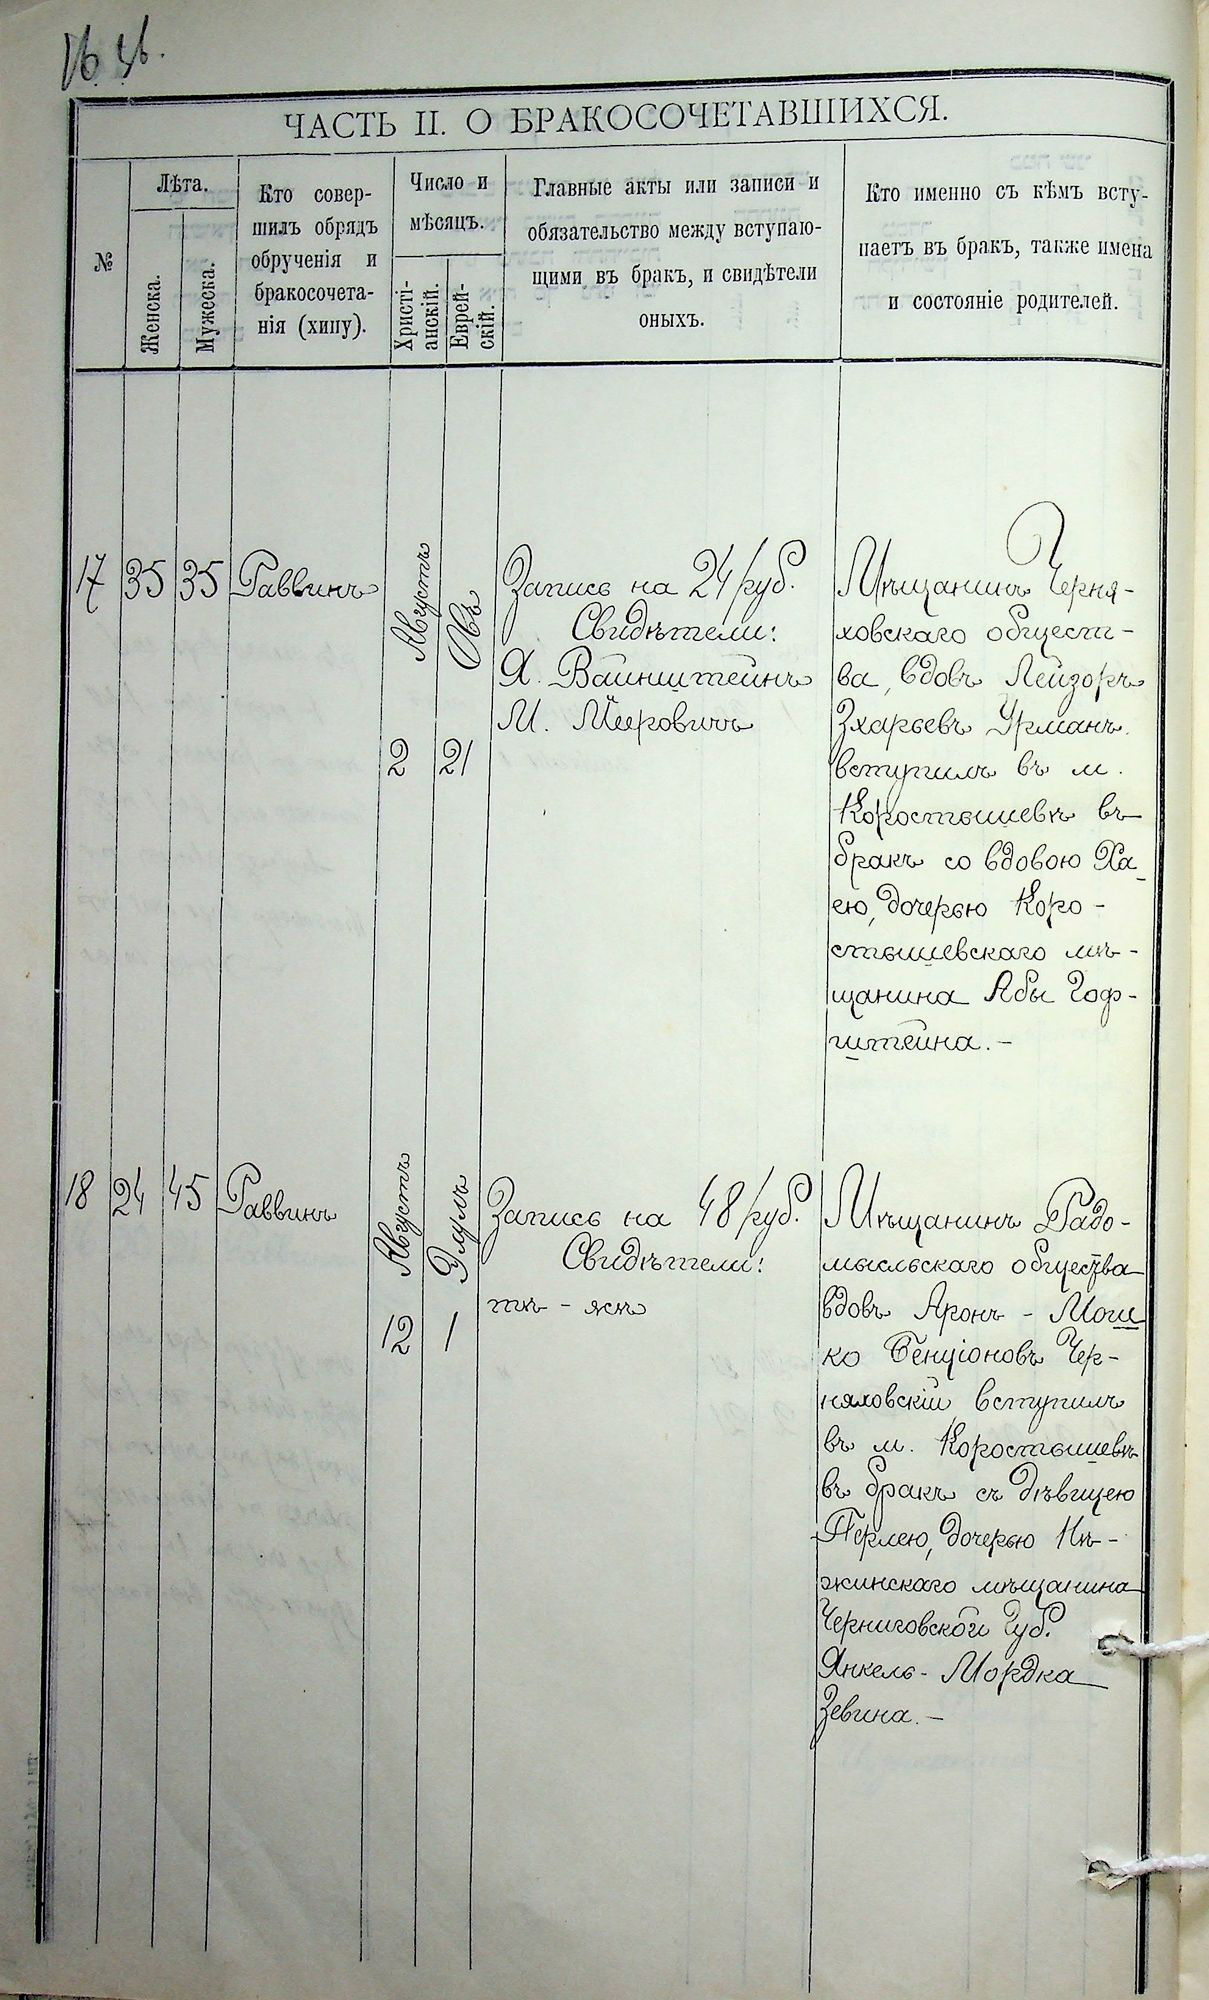 ЧАСТЬ II. О БРАКОСОЧЕТАВШИХСЯ.
№
Лѣта.
Женска.
Мужеска.
Кто совер-
шилъ обрядъ
обрученія и
бракосочета-
нія (хипу).
Число и
мѣсяцъ.
Христі-
анскій.
Еврей-
скій.
Главные акты или записи и
обязательство между вступаю-
щими въ бракъ, и свидѣтели
оныхъ.
Кто именно съ кѣмъ всту-
паетъ въ бракъ, также имена
и состояніе родителей.
17
35
35
Раввинъ
Августъ
2
Овъ
21
Запись на 24 руб.
Свидѣтели:
Я. Вайнштейнъ
М. Мееровичъ
Мѣщанинъ Черня-
ховскаго общест-
ва, вдовъ Лейзоръ
Зхарьевъ Урманъ
вступилъ въ м.
Коростышевѣ въ
бракъ со вдовою Ха-
ею, дочерью Коро-
стышевскаго мѣ-
щанина Абы Гоф-
штейна.-
18
24
45
Раввинъ
Августъ
12
Элулъ
1
Запись на 48 руб.
Свидѣтели:
тѣ-жѣ
Мѣщанинъ Радо-
мысльскаго общества
вдовъ Аронъ-Мош
ко Бенціоновъ Чер-
няховскій вступилъ
въ м. Коростышевѣ
въ бракъ съ дѣвицею
Перлею, дочерью Нѣ-
жинскаго мѣщанина
Черниговской Губ.
Янкель-Мордка
Зевина.-